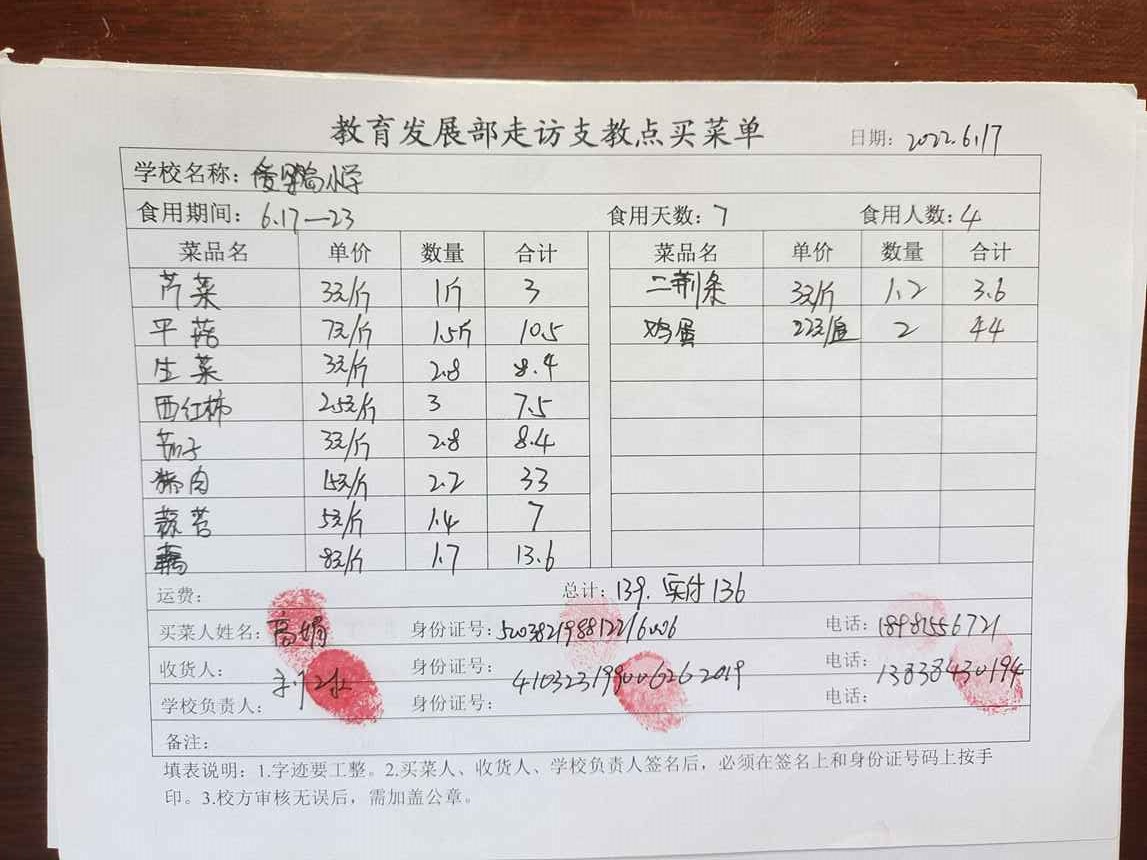 教育发展部走访支教点买菜单
日期: 2022.6.17
学校名称: 小学
食用期间: 6.17—23 食用天数: 7 食用人数: 4
菜品名 单价 数量 合计 菜品名 单价 数量 合计
芹菜 3元/斤 1斤 3 二荆条 3元/斤 1.2 3.6
平菇 7元/斤 1.5斤 10.5 鸡蛋 22元/盘 2 44
生菜 3元/斤 2.8 8.4
西红柿 2.5元/斤 3 7.5
茄子 3元/斤 2.8 8.4
猪肉 15元/斤 2.2 33
蒜苔 5元/斤 1.4 7
8元/斤 1.7 13.6
运费: 总计: 139. 实付136
买菜人姓名: 高娟 身份证号: 电话: 18981556721
收货人: 身份证号: 电话: 13838430194
学校负责人: 身份证号: 410323199006262019 电话:
备注:
填表说明：1.字迹要工整。2.买菜人、收货人、学校负责人签名后，必须在签名上和身份证号码上按手
印。3.校方审核无误后，需加盖公章。